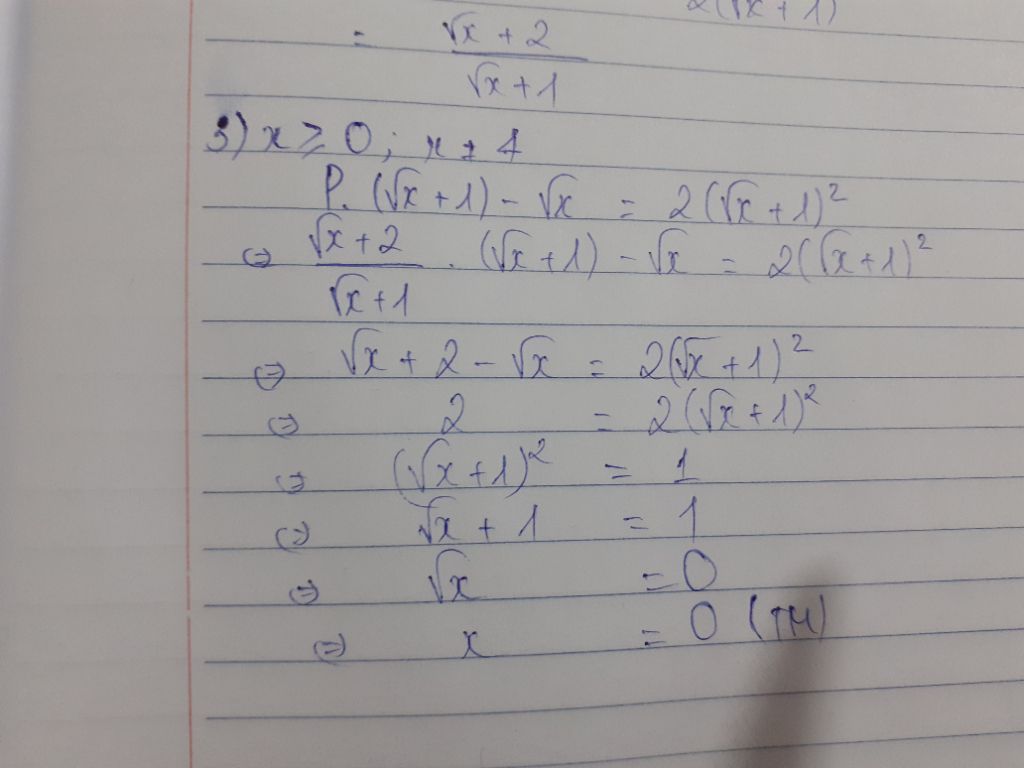 2(√x + 1)
= (√x + 2)/(√x + 1)
3) x ≥ 0; x ≠ 4
P. (√x + 1) - √x = 2(√x + 1)²
⇔ (√x + 2)/(√x + 1) . (√x + 1) - √x = 2(√x + 1)²
⇔ √x + 2 - √x = 2(√x + 1)²
⇔ 2 = 2(√x + 1)²
⇔ (√x + 1)² = 1
⇔ √x + 1 = 1
⇔ √x = 0
⇔ x = 0 (TM)